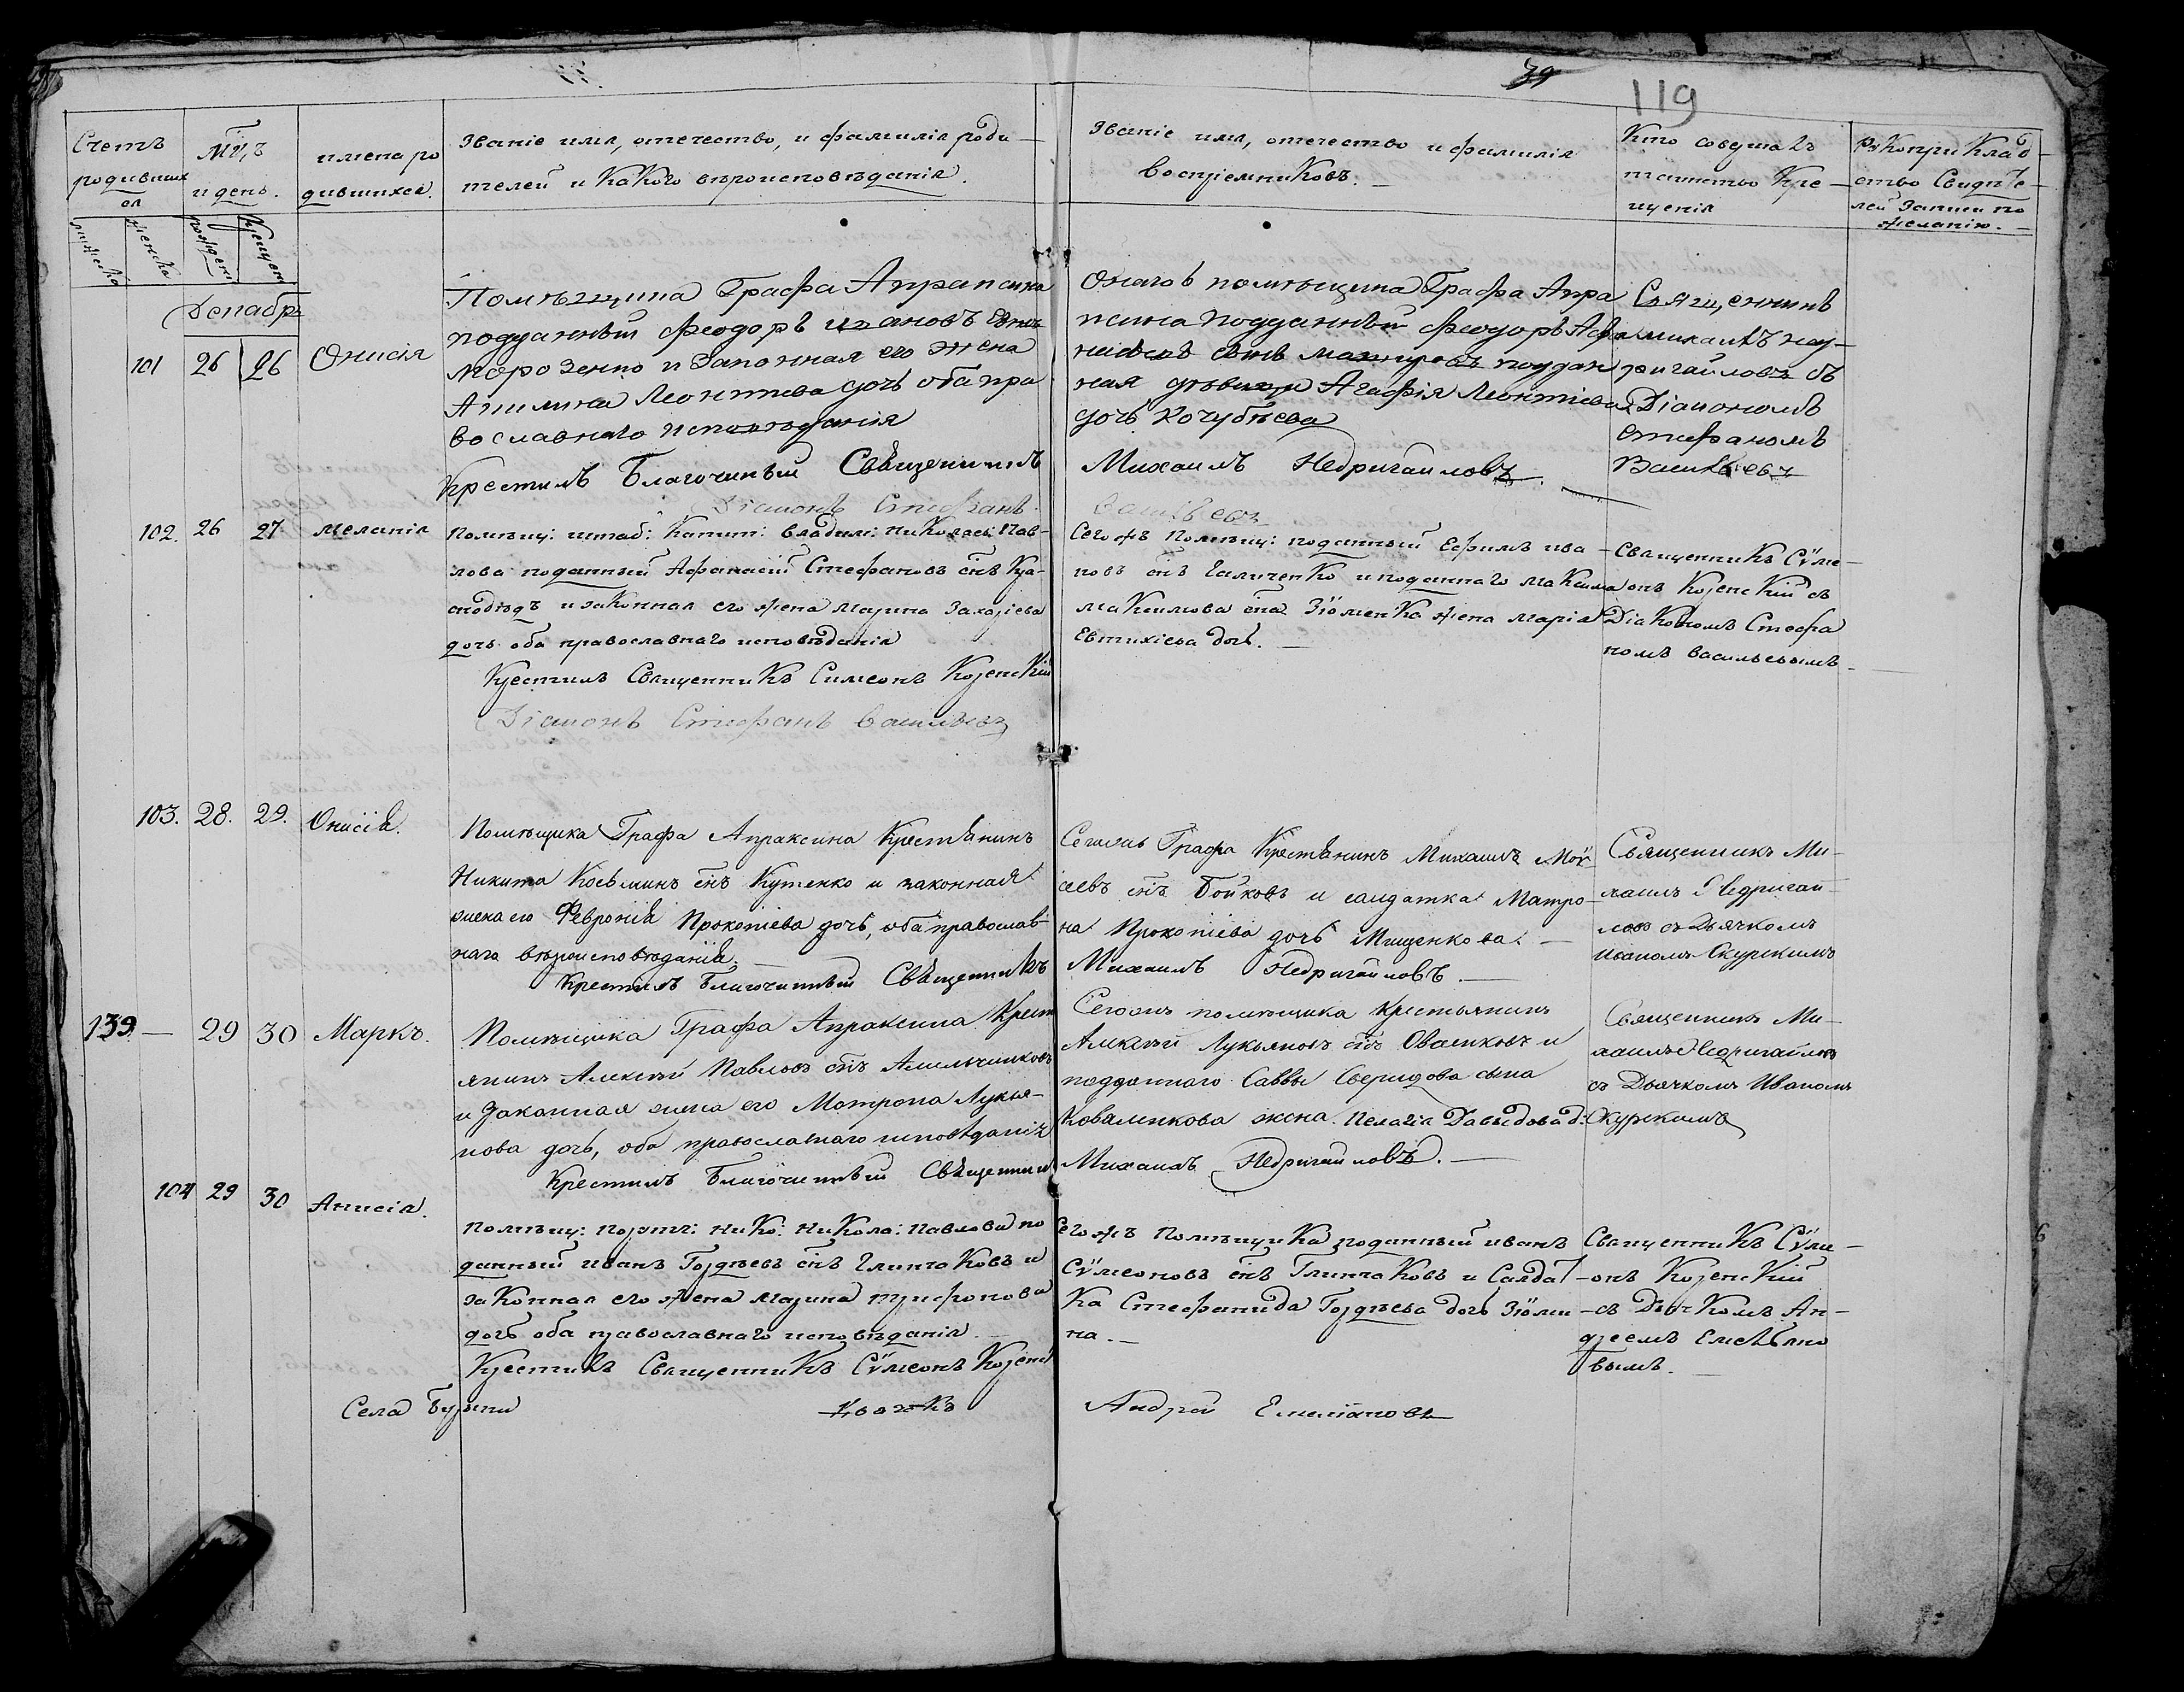 39
119
Счетъ родившихся
Мц,ъ и день.
имена родившихся.
Званіе имя, отечество, и фамилія роди-
телей и Какого вѣроисповѣданія.
Званіе имя, отечество и фамилія
воспріемниковъ.
Кто совершалъ
таинство Кре-
щенія
РуКоприКлад-
ство Свидѣте-
лей Записи по
желанію.
Декабрь
101 26 26 Онисія
Помѣщика Графа Апраксина
подданный Феодоръ Ивановъ сынъ
Морозенко и Законная его жена
Акилина Леонтиева дочь оба пра
вославнаго исповѣданія
Крестилъ Благочинный Священникъ
Діаконъ Стефанъ
Онагоъ помѣщика Графа Апра
ксина подданный Феодоръ Афа
поддан
ная дѣвица Агафія Леонтіева
дочь Кочубѣева
Михаилъ Недригайловъ
Васильевъ
Свящ,енникъ
михаилъ нед-
ригайловъ съ
Діакономъ
Стефаномъ
Васильевъ
102. 26 27 меланія
Помѣщ: штаб: Капит: владим: ниКолаев: Пав-
лова поданный Афанасій Стефановъ снъ Кра-
снодѣдъ и заКонная его жена марина Захаріева
дочь оба православнаго исповѣданія
Крестилъ СвященниКъ Симеонъ КоренсКій
Діаконъ Стефанъ Васильевъ
Сегожъ Помѣщ: поданный Ефимъ ива-
новъ снъ ГаличенКо и поданнаго маКсима
маКсимова сна ЗюменКа жена марія
Евтихіева дочь.
СвященниКъ Сѵме-
онъ КоренсКій съ
ДіаКономъ Стефа
номъ васильевымъ
103. 28. 29. Онисія.
Помѣщика Графа Апраксина Крестьянинъ
Никита Косьминъ снъ Кутенко и законная
жена его Февронія Прокопіева дочь, оба православ-
наго вѣроисповѣданія.
Крестилъ Благочинный Священникъ
Сегожъ Графа Крестьянинъ Михаилъ Мой-
сеевъ снъ Бойковъ и салдатка Матро-
на Прокопіева дочь Мищенкова.
Михаилъ Недригайловъ
Священникъ Ми-
хаилъ Недригай-
ловъ съ Дьячкомъ
Иваномъ Скурскимъ
139. — 29 30 Маркъ.
Помѣщика Графа Апраксина Крест
янинъ Алексѣй Павловъ снъ Амельчинковъ
и Законная жена его Матрона Лукья-
нова дочь, оба православнаго исповѣданія
Крестилъ Благочинный Священник
Сегожъ помѣщика крестьянинъ
Алексѣй Лукьяновъ снъ Овсиковъ и
подданнаго Саввы Свиридова сына
Коваленкова жена. Пелагія Давыдова д:
Михаилъ Недригайловъ.
Священникъ Ми-
хаилъ Недригайловъ
съ Дьячкомъ Иваномъ
Скурскимъ
104 29 30 Анисія.
Помѣщ: Порутч: НиКо: НиКола: Павлова по
данный иванъ Гордѣевъ снъ ГлинчаКовъ и
заКонная его жена марина трифонова
дочь оба православнаго исповѣданія
Крестилъ СвященниКъ Сѵмеонъ Коренс
Сегожъ ПомѣщиКа поданный иванъ
Сѵмеоновъ снъ ГлинчаКовъ и Салдат-
Ка Стефанида Гордѣева дочь Зюми-
на.
СвященниКъ Сѵме-
онъ КоренсКій
съ ДьячКомъ Ан-
дреемъ Емельяно
вымъ.
Села Бурыни
Андрей Емеліановъ